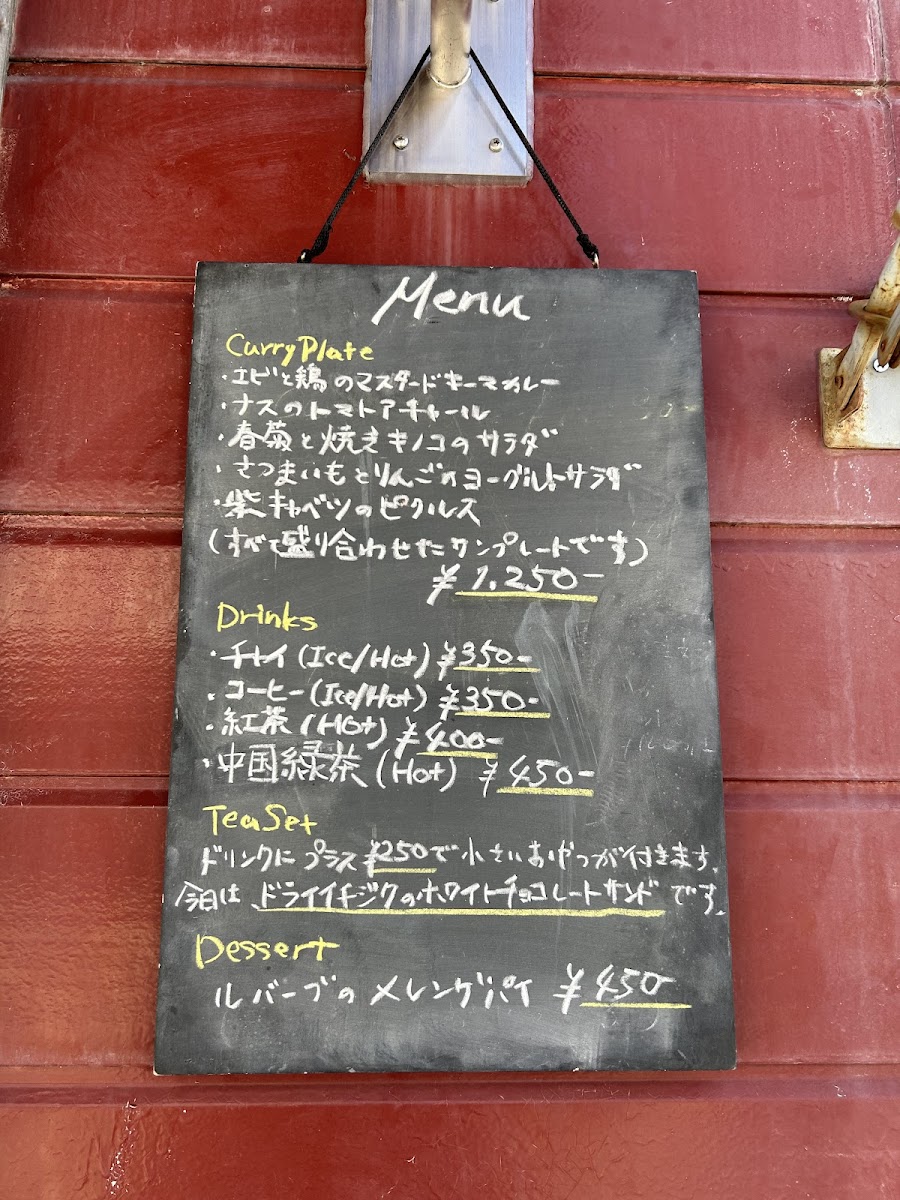 Menu
Curry Plate
・エビと鶏のマスタードキーマカレー
・ナスのトマトアチャール
・春菊と焼きキノコのサラダ
・さつまいもとりんごのヨーグルトサラダ
・紫キャベツのピクルス
(すべて盛り合わせたワンプレートです)
¥1,250-
Drinks
・チャイ(Ice/Hot) ¥350-
・コーヒー(Ice/Hot) ¥350-
・紅茶(Hot) ¥400-
・中国緑茶(Hot) ¥450-
Tea Set
ドリンクにプラス¥250で小さいおやつが付きます。
今日はドライイチジクのホワイトチョコレートサンドです。
Dessert
ルバーブのメレンゲパイ ¥450-